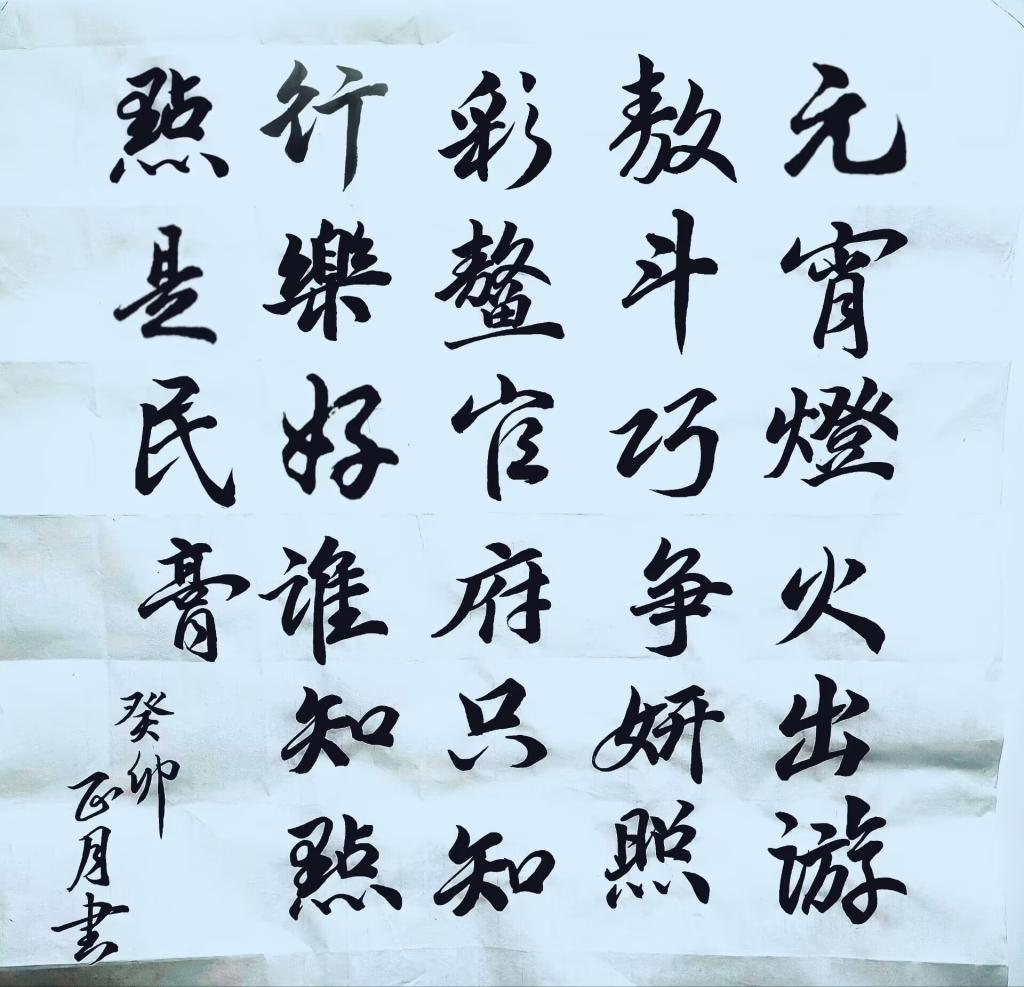 元宵燈火出游
敖斗巧争妍照
彩鳌官府只知
行樂好誰知點
點是民膏
癸卯
正月書